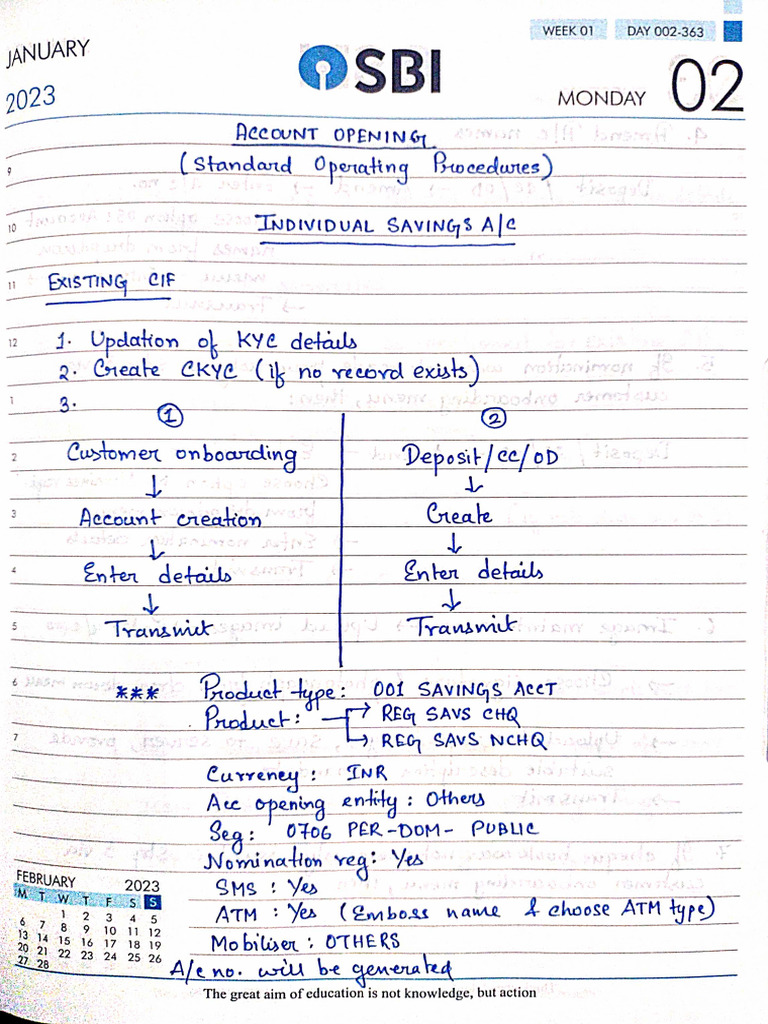 WEEK 01 DAY 002-363
JANUARY
2023
SBI
MONDAY 02
ACCOUNT OPENING
9 (Standard Operating Procedures)
10 INDIVIDUAL SAVINGS A/C
11 EXISTING CIF
12 1. Updation of KYC details
2. Create CKYC (if no record exists)
1 3.
1 2
2 Customer onboarding Deposit/CC/OD
↓ ↓
3 Account creation Create
↓ ↓
4 Enter details Enter details
↓ ↓
5 Transmit Transmit
6 *** Product type: 001 SAVINGS ACCT
Product: → REG SAVS CHQ
7 → REG SAVS NCHQ
Currency: INR
Acc opening entity: Others
Seg: 0706 PER-DOM- PUBLIC
Nomination reg: Yes
SMS: Yes
ATM: Yes (Emboss name & choose ATM type)
Mobiliser: OTHERS
A/c no. will be generated
FEBRUARY 2023
M T W T F S S
1 2 3 4 5
6 7 8 9 10 11 12
13 14 15 16 17 18 19
20 21 22 23 24 25 26
27 28
The great aim of education is not knowledge, but action